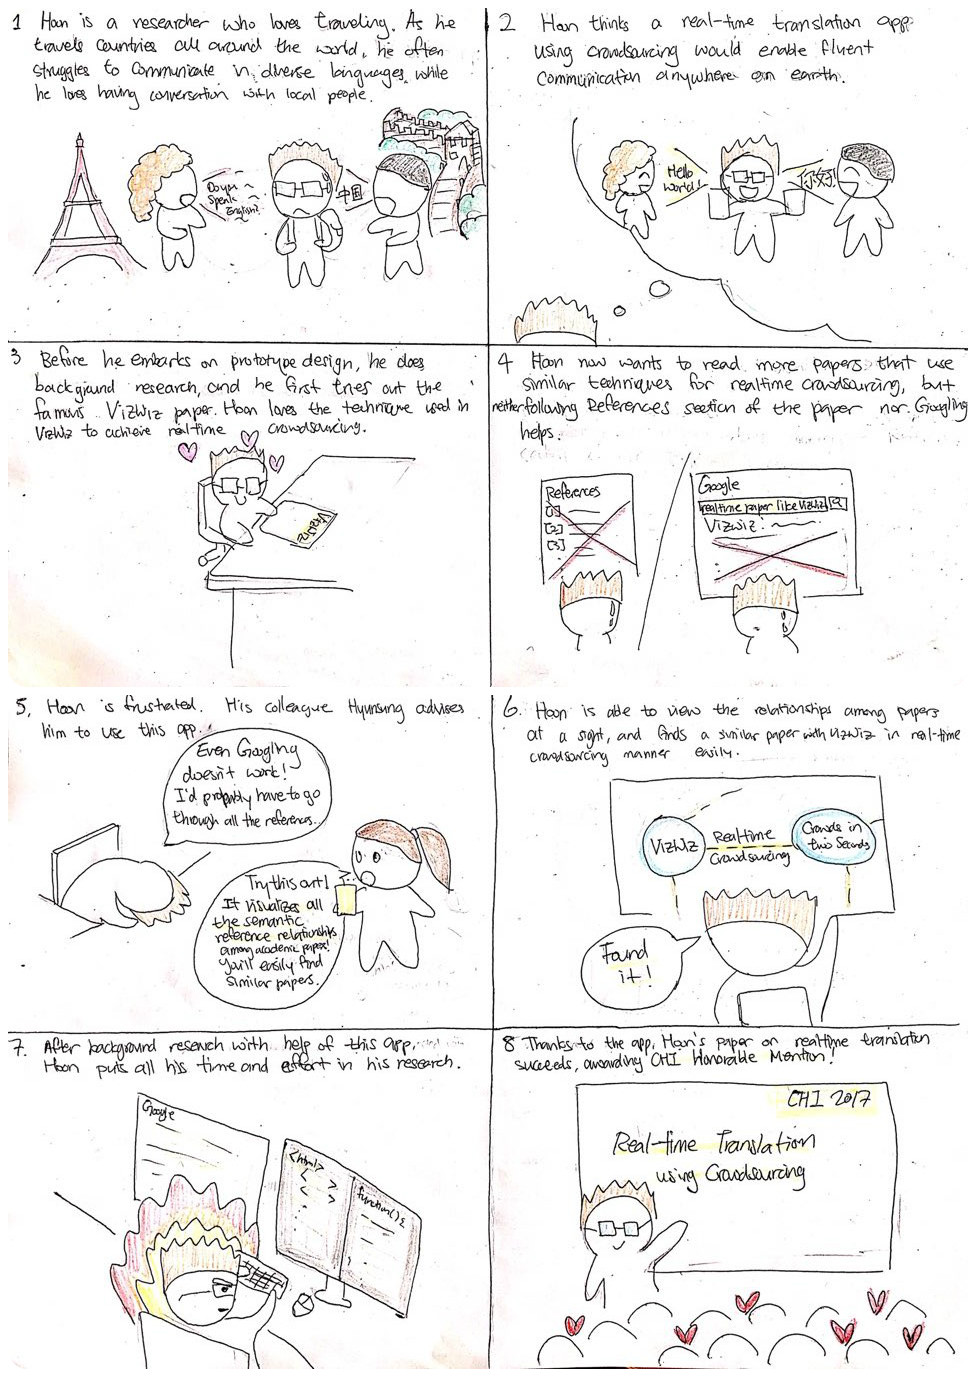 1 Hoon is a researcher who loves traveling. As he
travels countries all around the world, he often
struggles to communicate in diverse languages, while
he loves having conversation with local people.
Do you
Speak
English?
中国
2 Hoon thinks a real-time translation app
using crowdsourcing would enable fluent
communication anywhere on earth.
Hello
World!
你好!
3 Before he embarks on prototype design, he does
background research, and he first tries out the
famous VizWiz paper. Hoon loves the technique used in
VizWiz to achieve realtime crowdsourcing.
VizWiz
4 Hoon now wants to read more papers that use
similar techniques for realtime crowdsourcing, but
neither following References section of the paper nor Googling
helps.
References
[1]
[2]
[3]
Google
realtime paper like VizWiz
VizWiz:
5. Hoon is frustrated. His colleague Hyunsung advises
him to use this app.
Even Googling
doesn't work!
I'd probably have to go
through all the references.
Try this out!
It visualizes all
the semantic
reference relationships
among academic papers!
You'll easily find
similar papers.
6. Hoon is able to view the relationships among papers
at a sight, and finds a similar paper with VizWiz in real-time
crowdsourcing manner easily.
VizWiz
Realtime
Crowdsourcing
Crowds in
two Seconds
Found
it!
7. After background research with help of this app,
Hoon puts all his time and effort in his research.
Google
<html>
< >
< >
function(){
8 Thanks to the app, Hoon's paper on realtime translation
succeeds, awarding CHI Honorable Mention!
CHI 2017
Real-time Translation
using Crowdsourcing